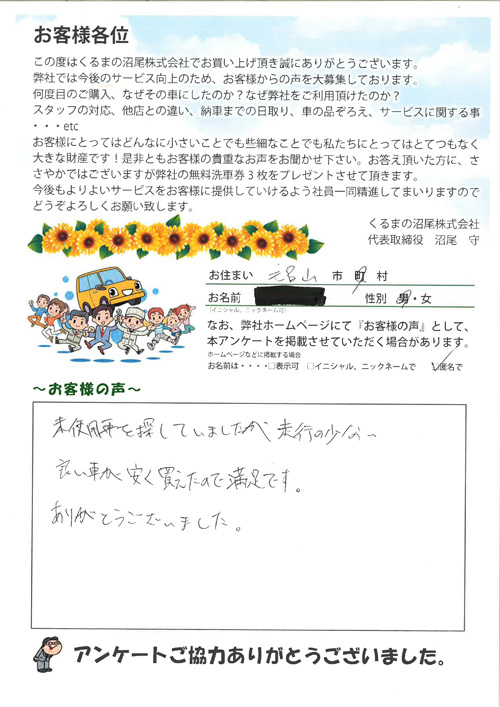 お客様各位
この度はくるまの沼尾株式会社でお買い上げ頂き誠にありがとうございます。
弊社では今後のサービス向上のため、お客様からの声を大募集しております。
何度目のご購入、なぜその車にしたのか？なぜ弊社をご利用頂けたのか？
スタッフの対応、他店との違い、納車までの日取り、車の品ぞろえ、サービスに関する事
・・・etc
お客様にとってはどんなに小さいことでも些細なことでも私たちにとってはとてつもなく
大きな財産です！是非ともお客様の貴重なお声をお聞かせ下さい。お答え頂いた方に、さ
さやかではございますが弊社の無料洗車券３枚をプレゼントさせて頂きます。
今後もよりよいサービスをお客様に提供していけるよう社員一同精進してまいりますので
どうぞよろしくお願い致します。
くるまの沼尾株式会社
代表取締役　沼尾　守
お住まい　毛呂山　市　町　村
お名前　性別　男・女
（イニシャル、ニックネーム可）
なお、弊社ホームページにて『お客様の声』として、
本アンケートを掲載させていただく場合があります。
ホームページなどに掲載する場合
お名前は・・・・□表示可　□イニシャル、ニックネームで　☑匿名で
～お客様の声～
未使用車を探していましたが、走行の少ない
良い車が安く買えたので満足です。
ありがとうございました。
アンケートご協力ありがとうございました。